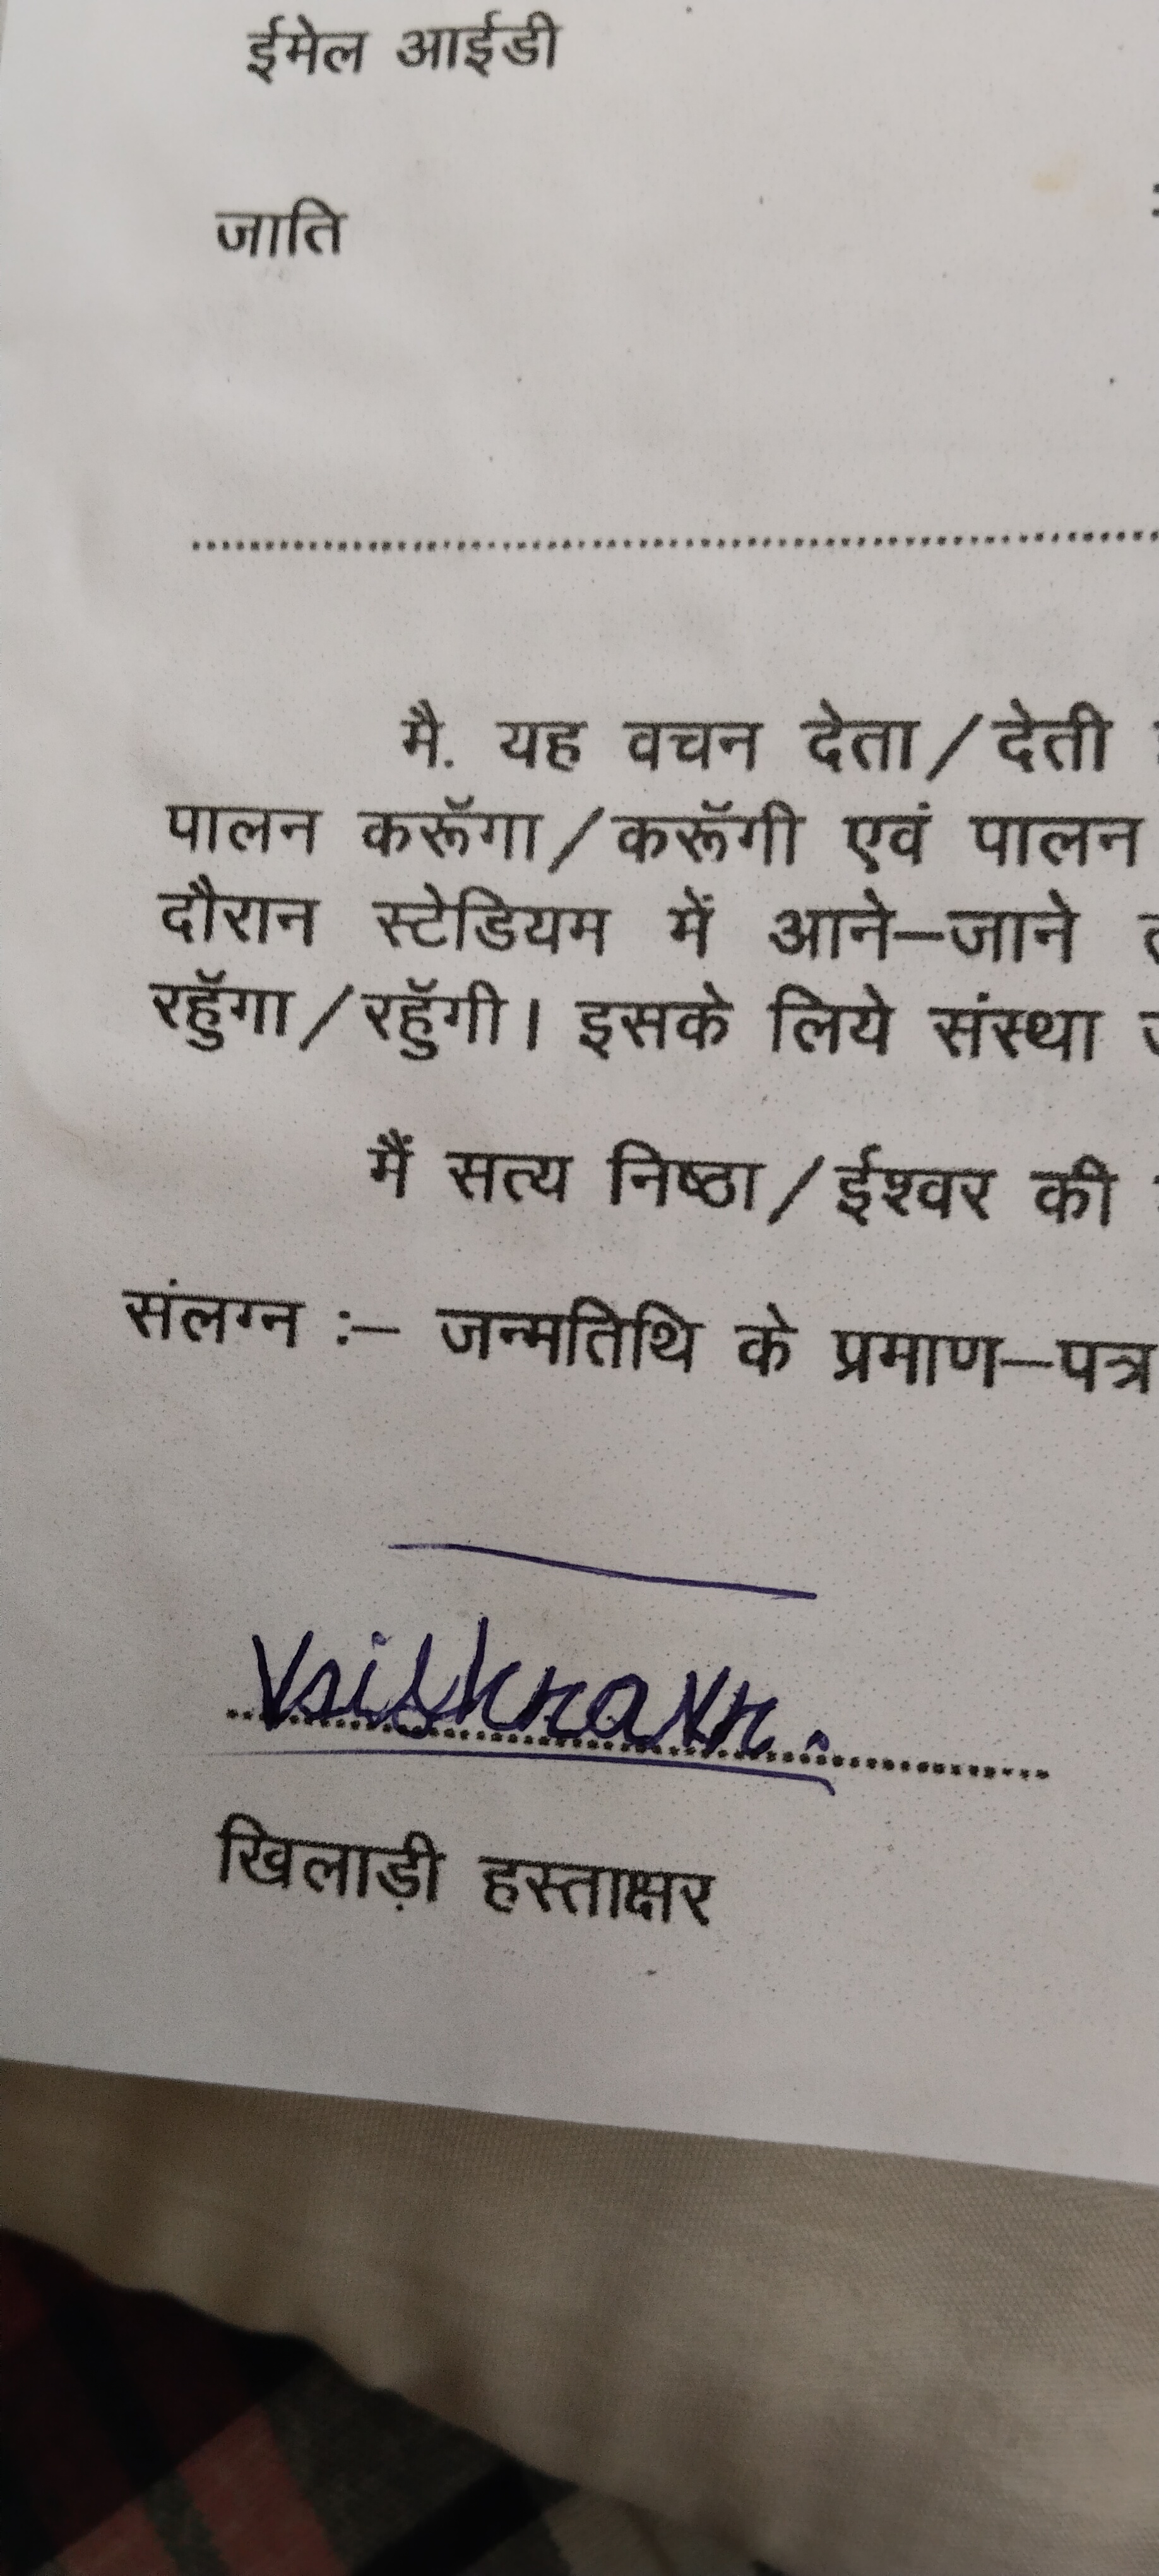 ईमेल आईडी
जाति
मै. यह वचन देता/देती
पालन करूॅगा/करूॅगी एवं पालन
दौरान स्टेडियम में आने–जाने
रहुॅगा/रहुॅगी। इसके लिये संस्था
मैं सत्य निष्ठा/ईश्वर की
संलग्न :– जन्मतिथि के प्रमाण–पत्र
खिलाड़ी हस्ताक्षर